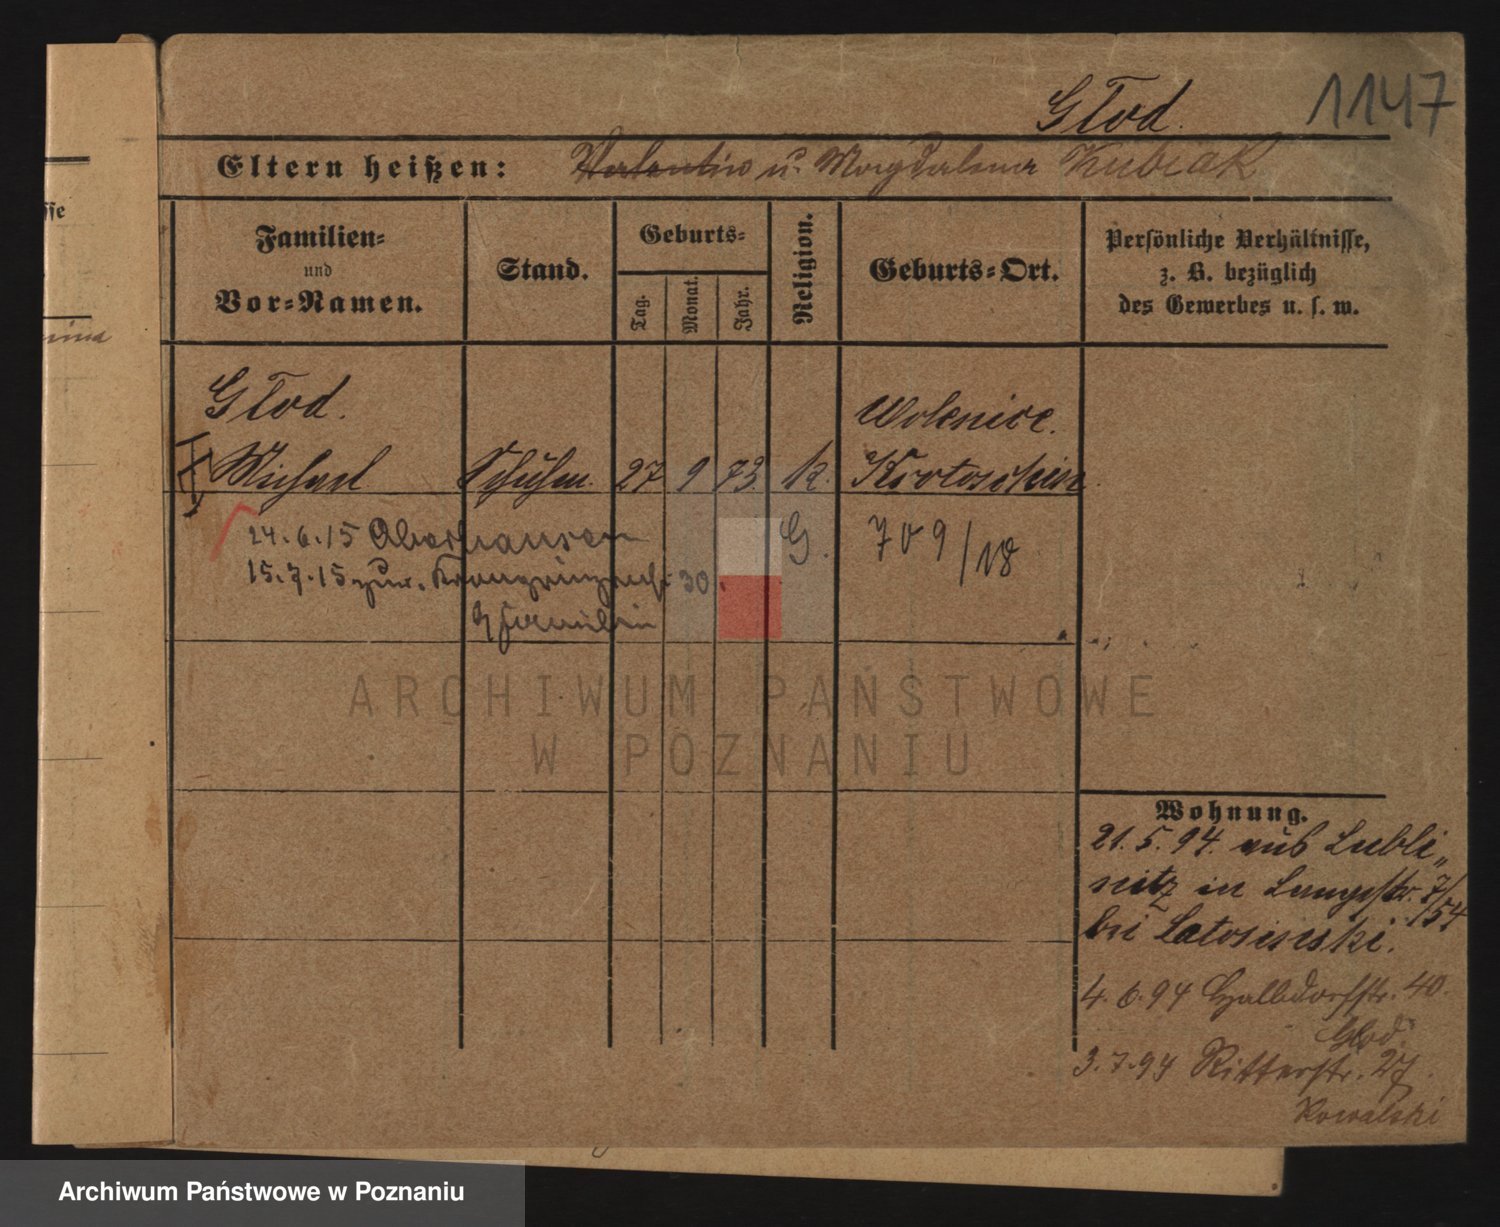 Głod.
1147
Eltern heißen: Valentin u. Magdalena Kubiak
Familien-
und
Vor-Namen.
Stand.
Geburts-
Tag.
Monat.
Jahr.
Religion.
Geburts-Ort.
Persönliche Verhältnisse,
z. B. bezüglich
des Gewerbes u. s. w.
sse
Głod.
Wolenice.
Michael Schuhm. 27 9 73. k. Krotoschin.
24.6.15 Oberhausen G. 709/18
15.7.15 zur. 30.
Familie
ARCHIWUM PAŃSTWOWE
W POZNANIU
Wohnung.
21.5.94. aus Lubli„
nitz in Langestr. 7/
54
bei Latosinski.
4.6.94 Halbdorfstr. 40.
Glod.
3.7.94 Ritterstr. 27.
Kowalski
Archiwum Państwowe w Poznaniu